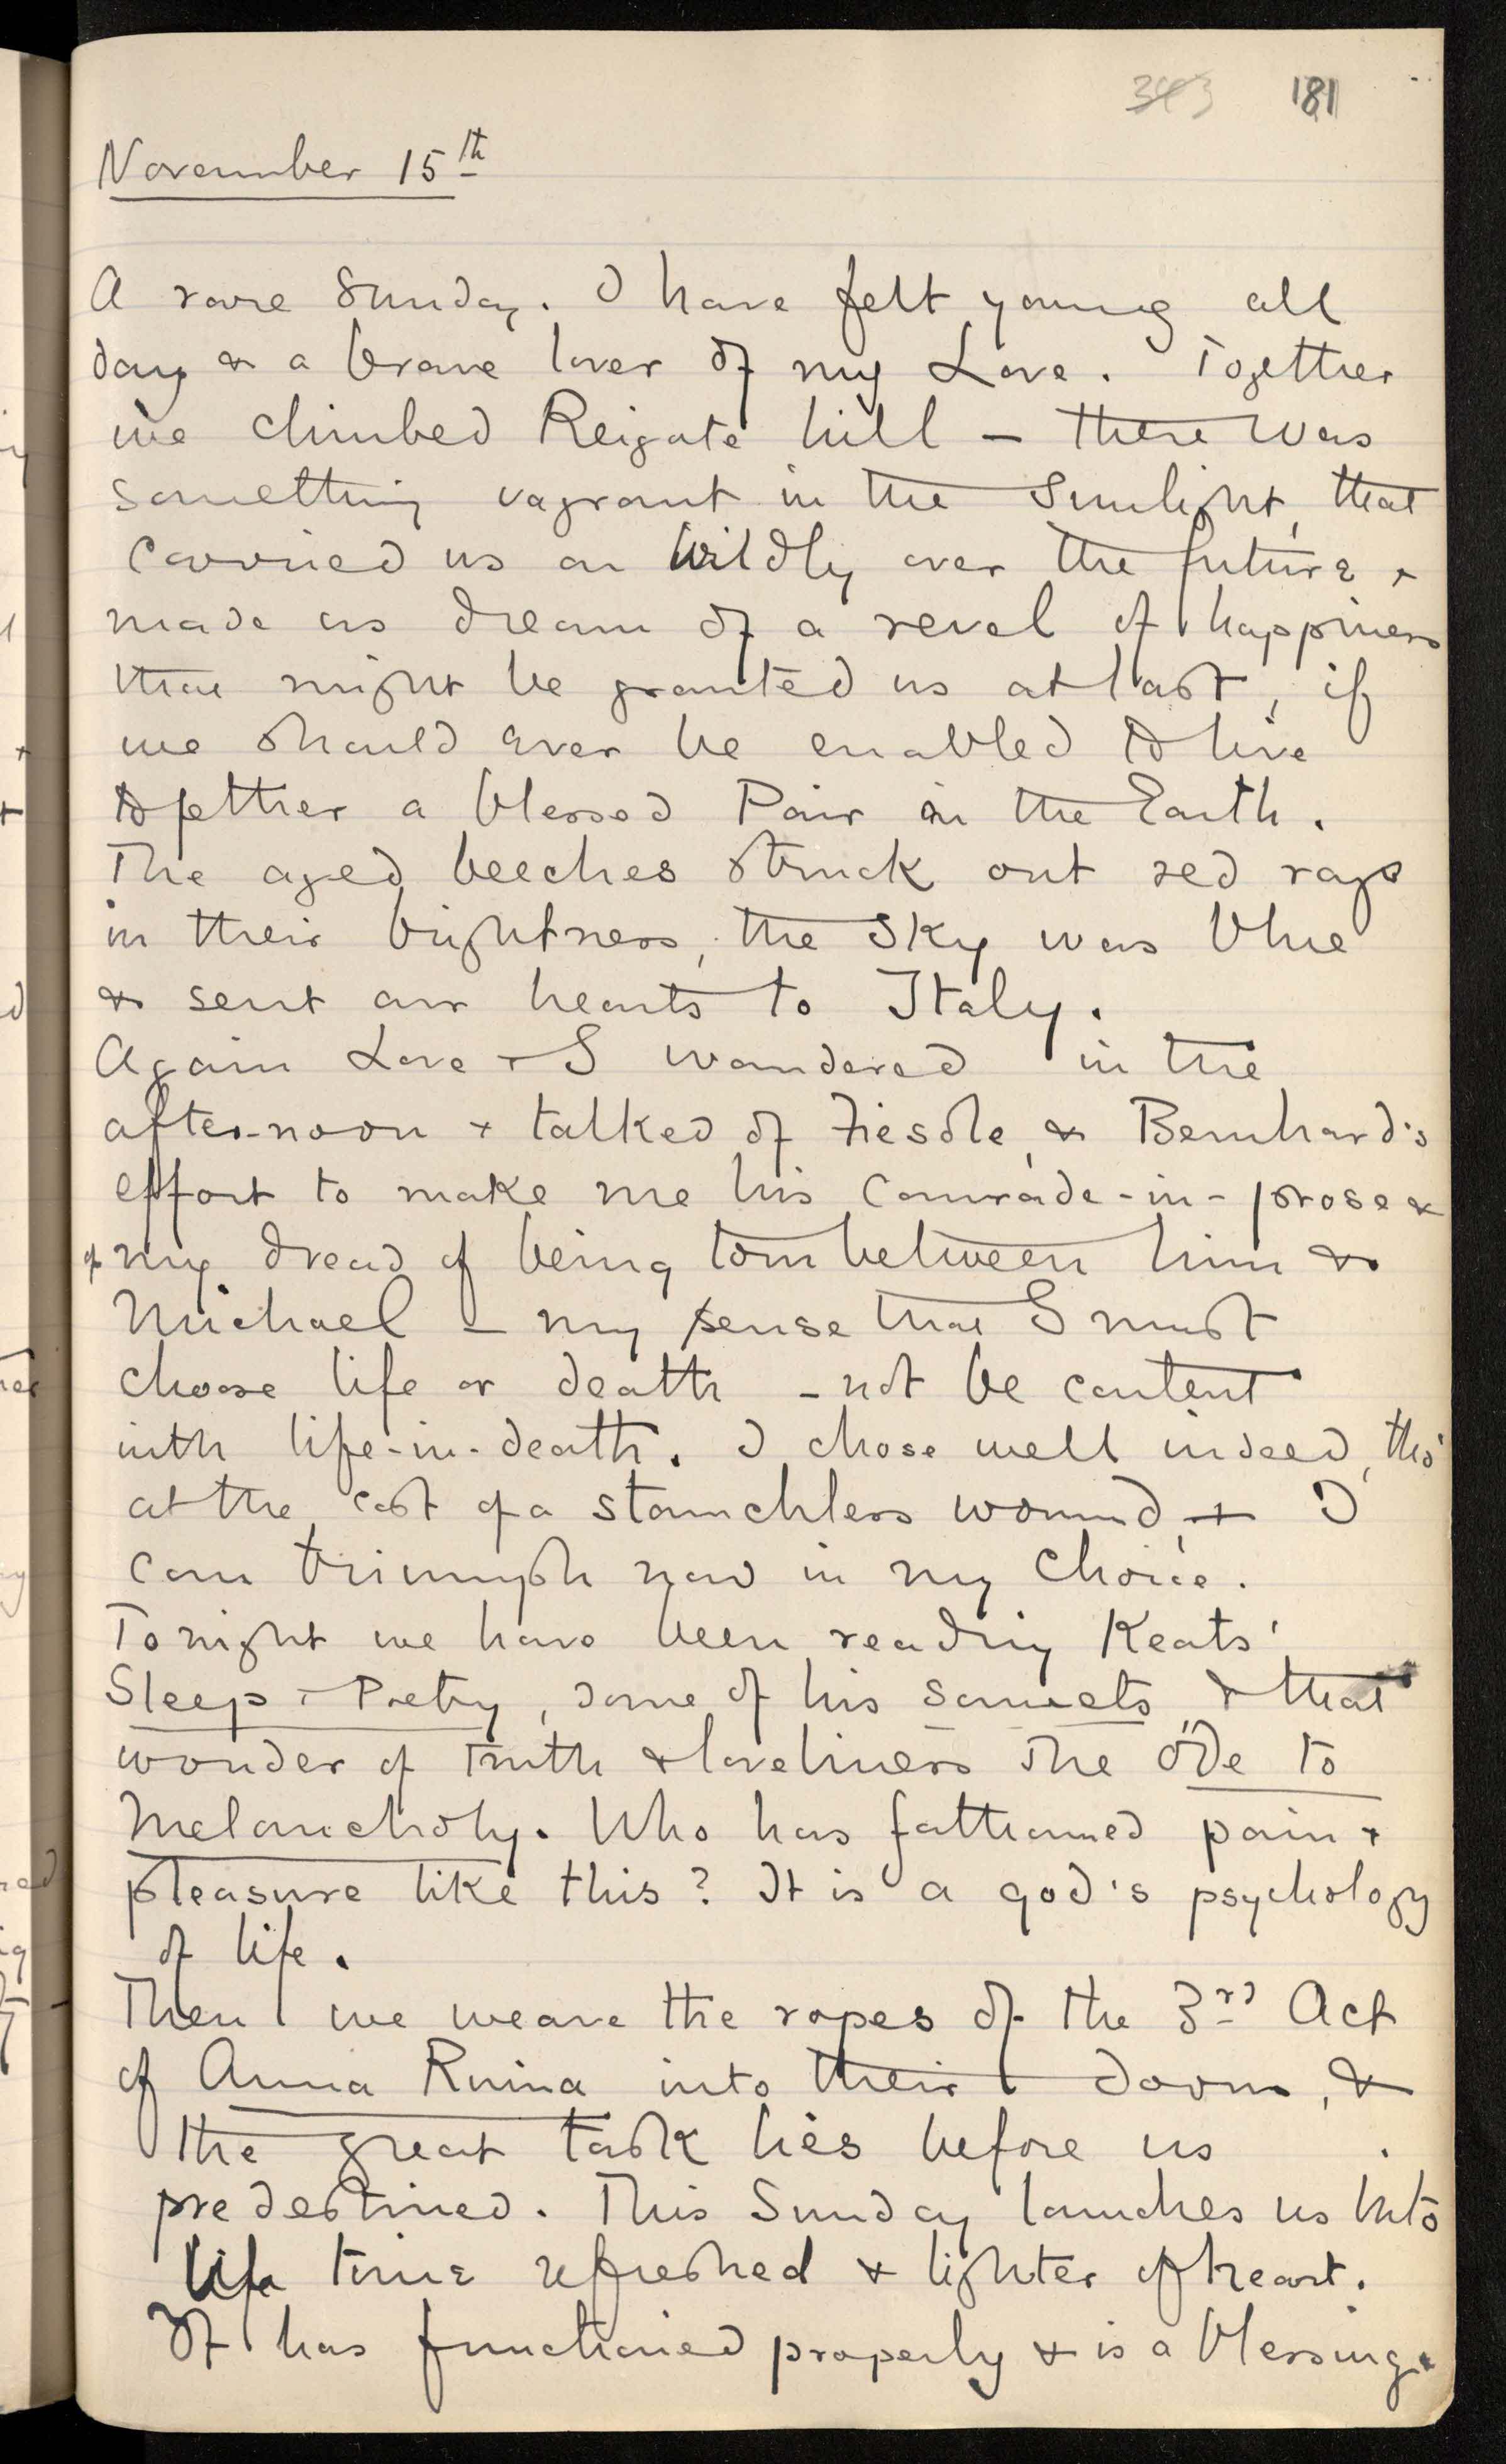 343 181
November 15th
A rare Sunday. I have felt young all
day & a brave lover of my Love. Together
we climbed Reigate hill – there was
something vagrant in the Sunlight, that
carried us on wildly over the future &
made us dream of a revel of happiness
that might be granted us at last, if
we should ever be enabled to live
together a blessed Pair on the Earth.
The aged beeches struck out red rays
in their brightness, the sky was blue
& sent our hearts to Italy.
Again Love & I wandered in the
after-noon & talked of Fiesole, & Bernhard's
effort to make me his Comrade-in-prose &
of my dread of being torn between him &
Michael – my sense that I must
choose life or death – not be content
with life-in-death. I chose well indeed, tho'
at the cost of a stanchless wound, & I
can triumph now in my choice.
Tonight we have been reading Keats'
Sleep & Poetry, some of his sonnets & that
wonder of truth & loveliness The Ode to
Melancholy. Who has fathomed pain &
pleasure like this? It is a god's psychology
of life.
Then we weave the ropes of the 3rd Act
of Anna Ruina into their doom, &
the great task lies before us
predestined. This Sunday launches us into
life time refreshed & lighter of heart.
It has functioned properly & is a blessing.